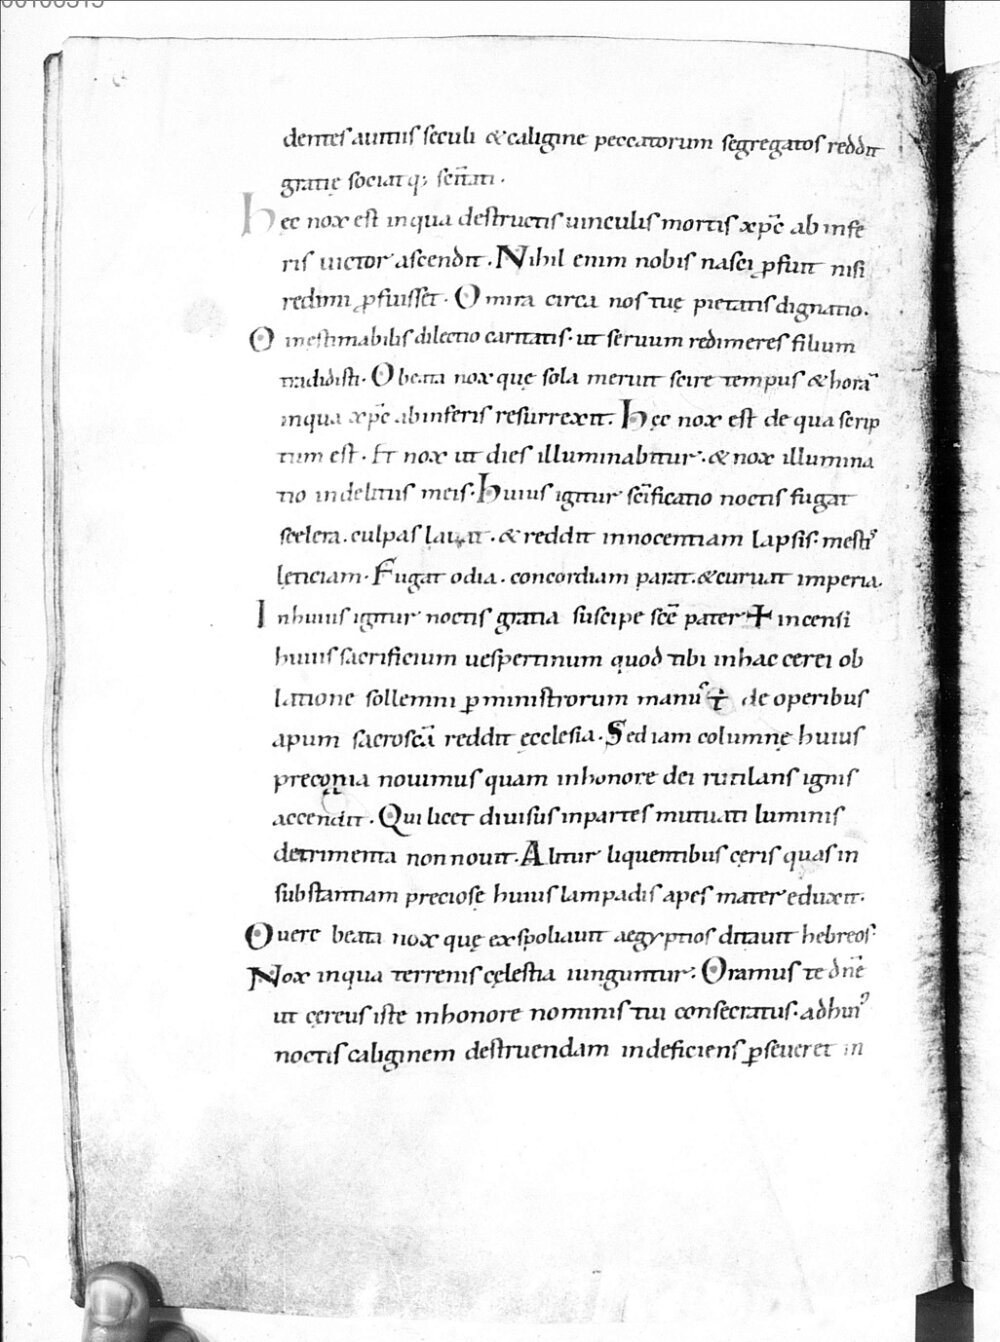 dentes a uitiis seculi & caligine peccatorum segregatos reddit
gratię sociatq; sc̄itati.
Hęc nox est inqua destructis uinculis mortis xp̄c ab infe
ris uictor ascendit. Nihil enim nobis nasci ꝓfuit nisi
redimi ꝓfuisset. O mira circa nos tuę pietatis dignatio.
O inęstimabilis dilectio caritatis. ut seruum redimeres filium
tradidisti. O beata nox quę sola meruit scire tempus & horā
inqua xp̄c abinferis resurrexit. Hęc nox est de qua scrip
tum est. Et nox ut dies illuminabitur. & nox illumina
tio indelitiis meis. Huius igitur sc̄ificatio noctis fugat
scelera. culpas lauat. & reddit innocentiam lapsis. mestis
leticiam. Fugat odia. concordiam parat. & curuat imperia.
Inhuius igitur noctis gratia suscipe sc̄e pater ✝ incensi
huius sacrificium uespertinum quod tibi inhac cerei ob
latione sollemni ꝑ ministrorum manus ✝ de operibus
apum sacroscā reddit ęcclesia. Sed iam columnę huius
pręconia nouimus quam inhonore dei rutilans ignis
accendit. Qui licet diuisus inpartes mutuati luminis
detrimenta non nouit. Alitur liquentibus ceris quas in
substantiam preciosę huius lampadis apes mater eduxit.
O uere beata nox quę exspoliauit aegyptios ditauit hebreos.
Nox inqua terrenis cęlestia iunguntur. Oramus te dn̄e
ut cereus iste inhonore nominis tui consecratus. adhui9
noctis caliginem destruendam indeficiens ꝑseueret in